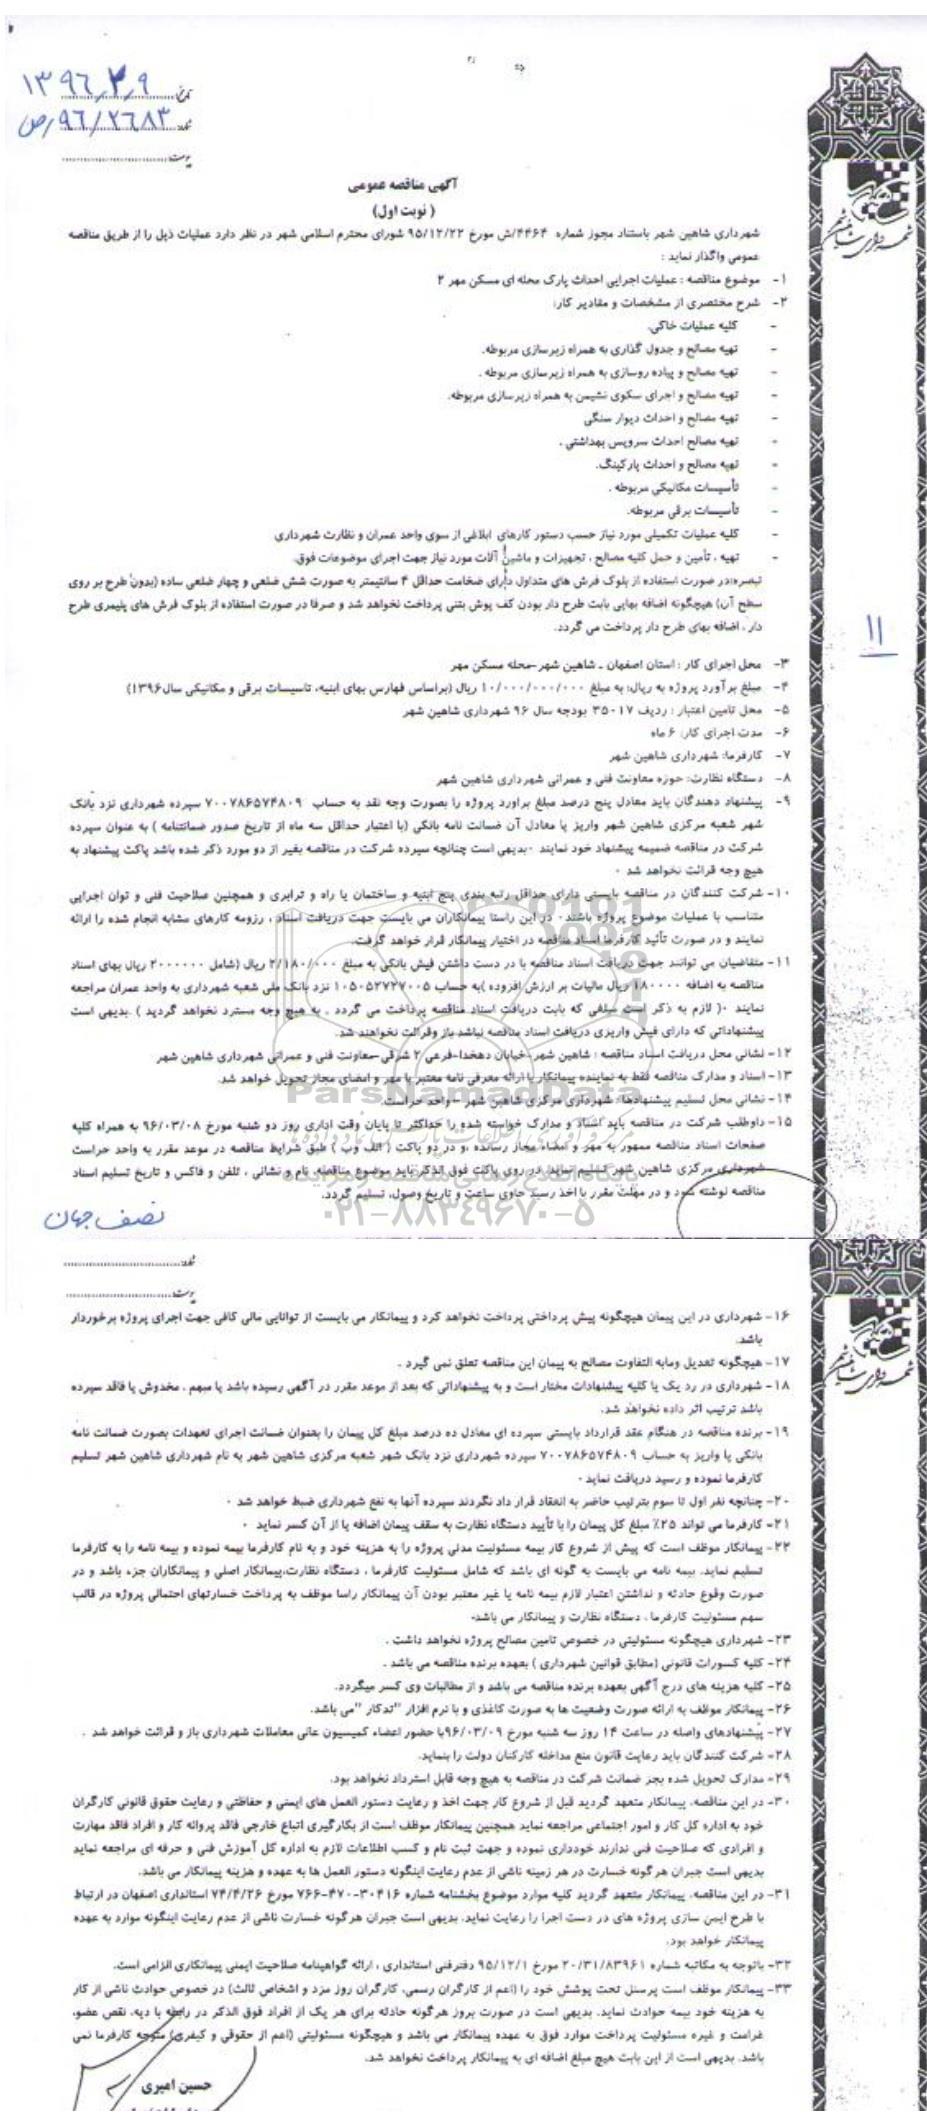 تاریخ: ۱۳۹۶٫۳٫۹
شماره: ۹۶/۲۶۸۳/ص
پیوست:
آگهی مناقصه عمومی
( نوبت اول)
شهرداری شاهین شهر باستناد مجوز شماره ۴۴۶۴/ش مورخ ۹۵/۱۲/۲۲ شورای محترم اسلامی شهر در نظر دارد عملیات ذیل را از طریق مناقصه
عمومی واگذار نماید :
۱- موضوع مناقصه : عملیات اجرایی احداث پارک محله ای مسکن مهر ۲
۲- شرح مختصری از مشخصات و مقادیر کار:
- کلیه عملیات خاکی.
- تهیه مصالح و جدول گذاری به همراه زیرسازی مربوطه.
- تهیه مصالح و پیاده روسازی به همراه زیرسازی مربوطه .
- تهیه مصالح و اجرای سکوی نشیمن به همراه زیرسازی مربوطه.
- تهیه مصالح و احداث دیوار سنگی
- تهیه مصالح احداث سرویس بهداشتی .
- تهیه مصالح و احداث پارکینگ.
- تأسیسات مکانیکی مربوطه .
- تأسیسات برقی مربوطه.
کلیه عملیات تکمیلی مورد نیاز حسب دستور کارهای ابلاغی از سوی واحد عمران و نظارت شهرداری
- تهیه ، تأمین و حمل کلیه مصالح ، تجهیزات و ماشین آلات مورد نیاز جهت اجرای موضوعات فوق.
تبصره:در صورت استفاده از بلوک فرش های متداول دارای ضخامت حداقل ۴ سانتیمتر به صورت شش ضلعی و چهار ضلعی ساده (بدون طرح بر روی
سطح آن) هیچگونه اضافه بهایی بابت طرح دار بودن کف پوش بتنی پرداخت نخواهد شد و صرفا در صورت استفاده از بلوک فرش های پلیمری طرح
دار ، اضافه بهای طرح دار پرداخت می گردد.
۱۱
۳- محل اجرای کار : استان اصفهان ـ شاهین شهر-محله مسکن مهر
۴- مبلغ برآورد پروژه به ریال: به مبلغ ۱۰/۰۰۰/۰۰۰/۰۰۰ ریال (براساس فهارس بهای ابنیه، تاسیسات برقی و مکانیکی سال۱۳۹۶)
۵- محل تامین اعتبار : ردیف ۳۵۰۱۷ بودجه سال ۹۶ شهرداری شاهین شهر
۶- مدت اجرای کار: ۶ ماه
۷- کارفرما: شهرداری شاهین شهر
۸- دستگاه نظارت: حوزه معاونت فنی و عمرانی شهرداری شاهین شهر
۹- پیشنهاد دهندگان باید معادل پنج درصد مبلغ براورد پروژه را بصورت وجه نقد به حساب ۷۰۰۷۸۶۵۷۴۸۰۹ سپرده شهرداری نزد بانک
شهر شعبه مرکزی شاهین شهر واریز یا معادل آن ضمانت نامه بانکی (با اعتبار حداقل سه ماه از تاریخ صدور ضمانتنامه ) به عنوان سپرده
شرکت در مناقصه ضمیمه پیشنهاد خود نمایند .بدیهی است چنانچه سپرده شرکت در مناقصه بغیر از دو مورد ذکر شده باشد پاکت پیشنهاد به
هیچ وجه قرائت نخواهد شد .
۱۰- شرکت کنندگان در مناقصه بایستی دارای حداقل رتبه بندی پنج ابنیه و ساختمان یا راه و ترابری و همچنین صلاحیت فنی و توان اجرایی
متناسب با عملیات موضوع پروژه باشند. در این راستا پیمانکاران می بایست جهت دریافت اسناد ، رزومه کارهای مشابه انجام شده را ارائه
نمایند و در صورت تأئید کارفرما اسناد مناقصه در اختیار پیمانکار قرار خواهد گرفت.
۱۱- متقاضیان می توانند جهت دریافت اسناد مناقصه با در دست داشتن فیش بانکی به مبلغ ۲/۱۸۰/۰۰۰ ریال (شامل ۲۰۰۰۰۰۰ ریال بهای اسناد
مناقصه به اضافه ۱۸۰۰۰۰ ریال مالیات بر ارزش افزوده )به حساب ۱۰۵۰۵۲۷۲۷۰۰۵ نزد بانک ملی شعبه شهرداری به واحد عمران مراجعه
نمایند .( لازم به ذکر است مبلغی که بابت دریافت اسناد مناقصه پرداخت می گردد . به هیچ وجه مسترد نخواهد گردید ) .بدیهی است
پیشنهاداتی که دارای فیش واریزی دریافت اسناد مناقصه نباشد باز وقرائت نخواهند شد.
۱۲- نشانی محل دریافت اسناد مناقصه : شاهین شهر-خیابان دهخدا-فرعی ۲ شرقی-معاونت فنی و عمرانی شهرداری شاهین شهر
۱۳- اسناد و مدارک مناقصه فقط به نماینده پیمانکار با ارائه معرفی نامه معتبر با مهر و امضای مجاز تحویل خواهد شد.
۱۴- نشانی محل تسلیم پیشنهادها: شهرداری مرکزی شاهین شهر – واحد حراست.
ParsNamadData
۱۵- داوطلب شرکت در مناقصه باید اسناد و مدارک خواسته شده را حداکثر تا پایان وقت اداری روز دو شنبه مورخ ۹۶/۰۳/۰۸ به همراه کلیه
صفحات اسناد مناقصه ممهور به مهر و امضاء مجاز رسانده ،و در دو پاکت ( الف وب ) طبق شرایط مناقصه در موعد مقرر به واحد حراست
شهرداری مرکزی شاهین شهر تسلیم نمایند. در روی پاکت فوق الذکر باید موضوع مناقصه، نام و نشانی ، تلفن و فاکس و تاریخ تسلیم اسناد
مناقصه نوشته شود و در مهلت مقرر با اخذ رسید حاوی ساعت و تاریخ وصول، تسلیم گردد.
۰۲۱-۸۸۳۴۹۶۷۰-۵
نصف جهان
شماره:
پیوست:
۱۶- شهرداری در این پیمان هیچگونه پیش پرداختی پرداخت نخواهد کرد و پیمانکار می بایست از توانایی مالی کافی جهت اجرای پروژه برخوردار
باشد.
۱۷- هیچگونه تعدیل ومابه التفاوت مصالح به پیمان این مناقصه تعلق نمی گیرد .
۱۸- شهرداری در رد یک یا کلیه پیشنهادات مختار است و به پیشنهاداتی که بعد از موعد مقرر در آگهی رسیده باشد یا مبهم ، مخدوش یا فاقد سپرده
باشد ترتیب اثر داده نخواهد شد.
۱۹- برنده مناقصه در هنگام عقد قرارداد بایستی سپرده ای معادل ده درصد مبلغ کل پیمان را بعنوان ضمانت اجرای تعهدات بصورت ضمانت نامه
بانکی یا واریز به حساب ۷۰۰۷۸۶۵۷۴۸۰۹ سپرده شهرداری نزد بانک شهر شعبه مرکزی شاهین شهر به نام شهرداری شاهین شهر تسلیم
کارفرما نموده و رسید دریافت نماید .
۲۰- چنانچه نفر اول تا سوم بترتیب حاضر به انعقاد قرار داد نگردند سپرده آنها به نفع شهرداری ضبط خواهد شد .
۲۱- کارفرما می تواند ۲۵٪ مبلغ کل پیمان را با تأیید دستگاه نظارت به سقف پیمان اضافه یا از آن کسر نماید .
۲۲- پیمانکار موظف است که پیش از شروع کار بیمه مسئولیت مدنی پروژه را به هزینه خود و به نام کارفرما بیمه نموده و بیمه نامه را به کارفرما
تسلیم نماید. بیمه نامه می بایست به گونه ای باشد که شامل مسئولیت کارفرما ، دستگاه نظارت،پیمانکار اصلی و پیمانکاران جزء باشد و در
صورت وقوع حادثه و نداشتن اعتبار لازم بیمه نامه یا غیر معتبر بودن آن پیمانکار راسا موظف به پرداخت خسارتهای احتمالی پروژه در قالب
سهم مسئولیت کارفرما ، دستگاه نظارت و پیمانکار می باشد.
۲۳- شهرداری هیچگونه مسئولیتی در خصوص تامین مصالح پروژه نخواهد داشت .
۲۴- کلیه کسورات قانونی (مطابق قوانین شهرداری ) بعهده برنده مناقصه می باشد .
۲۵- کلیه هزینه های درج آگهی بعهده برنده مناقصه می باشد و از مطالبات وی کسر میگردد.
۲۶- پیمانکار موظف به ارائه صورت وضعیت ها به صورت کاغذی و با نرم افزار "تدکار "می باشد.
۲۷- پیشنهادهای واصله در ساعت ۱۴ روز سه شنبه مورخ ۹۶/۰۳/۰۹با حضور اعضاء کمیسیون عالی معاملات شهرداری باز و قرائت خواهد شد .
۲۸- شرکت کنندگان باید رعایت قانون منع مداخله کارکنان دولت را بنماید.
۲۹- مدارک تحویل شده بجز ضمانت شرکت در مناقصه به هیچ وجه قابل استرداد نخواهد بود.
۳۰- در این مناقصه، پیمانکار متعهد گردید قبل از شروع کار جهت اخذ و رعایت دستور العمل های ایمنی و حفاظتی و رعایت حقوق قانونی کارگران
خود به اداره کل کار و امور اجتماعی مراجعه نماید همچنین پیمانکار موظف است از بکارگیری اتباع خارجی فاقد پروانه کار و افراد فاقد مهارت
و افرادی که صلاحیت فنی ندارند خودداری نموده و جهت ثبت نام و کسب اطلاعات لازم به اداره کل آموزش فنی و حرفه ای مراجعه نماید
بدیهی است جبران هر گونه خسارت در هر زمینه ناشی از عدم رعایت اینگونه دستور العمل ها به عهده و هزینه پیمانکار می باشد.
۳۱- در این مناقصه، پیمانکار متعهد گردید کلیه موارد موضوع بخشنامه شماره ۳۰۴۱۶-۴۷۰-۷۶۶ مورخ ۷۴/۴/۲۶ استانداری اصفهان در ارتباط
با طرح ایمن سازی پروژه های در دست اجرا را رعایت نماید. بدیهی است جبران هرگونه خسارت ناشی از عدم رعایت اینگونه موارد به عهده
پیمانکار خواهد بود.
۳۲- باتوجه به مکاتبه شماره ۲۰/۳۱/۸۳۹۶۱ مورخ ۹۵/۱۲/۱ دفترفنی استانداری ، ارائه گواهینامه صلاحیت ایمنی پیمانکاری الزامی است.
۳۳- پیمانکار موظف است پرسنل تحت پوشش خود را (اعم از کارگران رسمی، کارگران روز مزد و اشخاص ثالث) در خصوص حوادث ناشی از کار
به هزینه خود بیمه حوادث نماید. بدیهی است در صورت بروز هرگونه حادثه برای هر یک از افراد فوق الذکر در رابطه با دیه، نقص عضو،
غرامت و غیره مسئولیت پرداخت موارد فوق به عهده پیمانکار می باشد و هیچگونه مسئولیتی (اعم از حقوقی و کیفری) متوجه کارفرما نمی
باشد. بدیهی است از این بابت هیچ مبلغ اضافه ای به پیمانکار پرداخت نخواهد شد.
حسین امیری